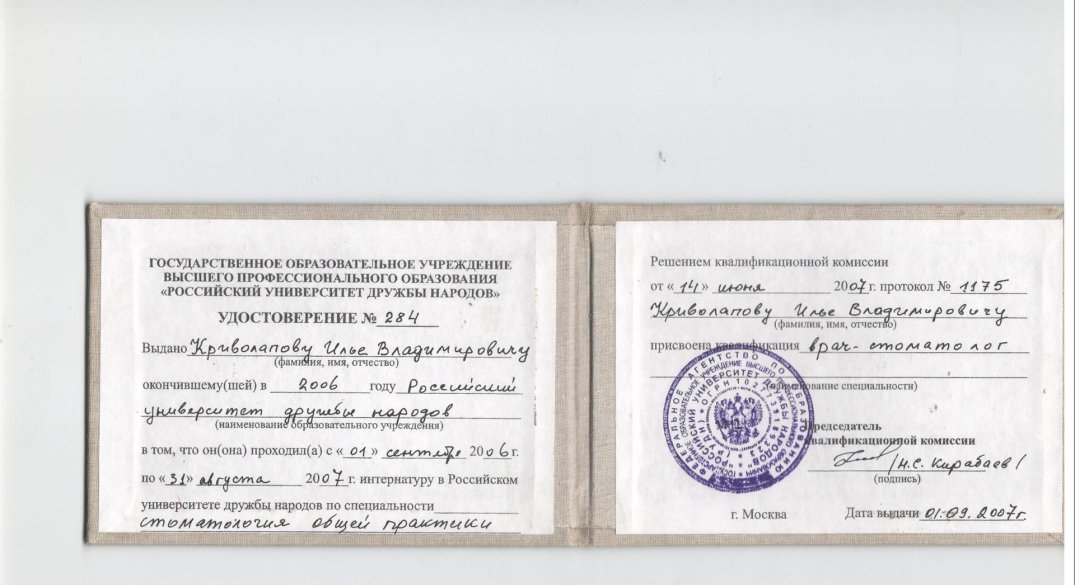 ГОСУДАРСТВЕННОЕ ОБРАЗОВАТЕЛЬНОЕ УЧРЕЖДЕНИЕ
ВЫСШЕГО ПРОФЕССИОНАЛЬНОГО ОБРАЗОВАНИЯ
«РОССИЙСКИЙ УНИВЕРСИТЕТ ДРУЖБЫ НАРОДОВ»
УДОСТОВЕРЕНИЕ № 284
Выдано Криволапову Илье Владимировичу
(фамилия, имя, отчество)
окончившему(шей) в 2006 году Российский
университет дружбы народов
(наименование образовательного учреждения)
в том, что он(она) проходил(а) с «01» сентября 2006 г.
по «31» августа 2007 г. интернатуру в Российском
университете дружбы народов по специальности
стоматология общей практики
Решением квалификационной комиссии
от «14» июня 2007 г. протокол № 1175
Криволапову Илье Владимировичу
(фамилия, имя, отчество)
присвоена квалификация врач-стоматолог
(наименование специальности)
ФЕДЕРАЛЬНОЕ АГЕНТСТВО ПО ОБРАЗОВАНИЮ
«РОССИЙСКИЙ УНИВЕРСИТЕТ ДРУЖБЫ НАРОДОВ»
Председатель
квалификационной комиссии
/Н.С. Кирабаев/
(подпись)
г. Москва Дата выдачи 01.09.2007г